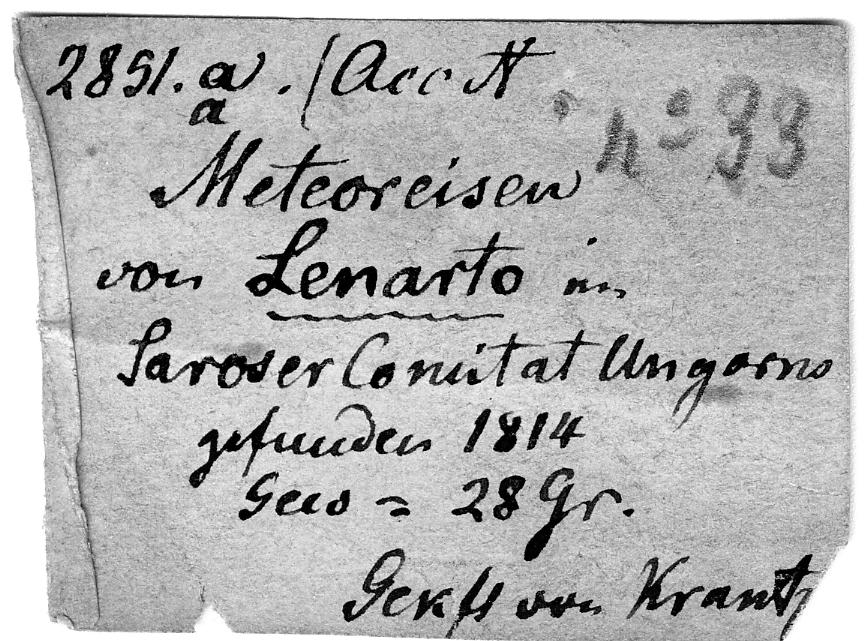 2851. a . (Acc N
a
nº 33
Meteoreisen
von Lenarto im
Saroser Comitat Ungarns
gefunden 1814
Gew = 28 Gr.
Gekft von Krantz